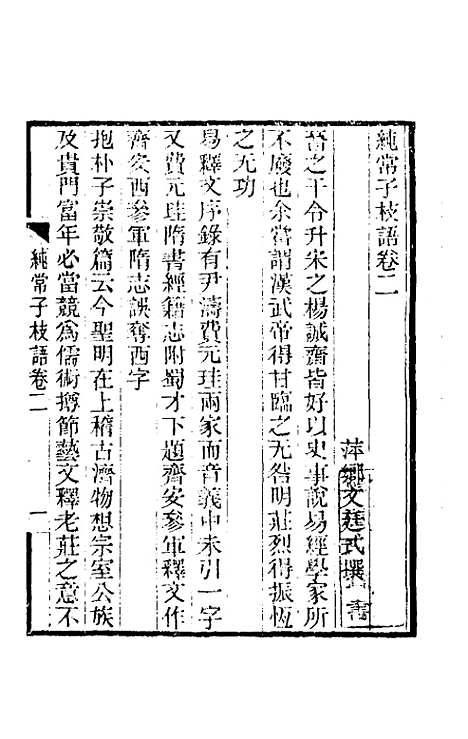 純常子枝語卷二
萍鄉文廷式撰
晉之干令升朱之楊誠齋皆好以史事說易經學家所
不廢也余嘗謂漢武帝得甘臨之无咎明莊烈得振恆
之无功
易釋文序錄有尹濤費元珪兩家而音義中未引一字
又費元珪隋書經籍志附蜀才下題齊安參軍釋文作
齊安西參軍隋志誤奪西字
抱朴子崇敬篇云今聖明在上稽古濟物想宗室公族
及貴門富年必當競為儒術撙節藝文釋老莊之意不
純常子枝語卷二
一